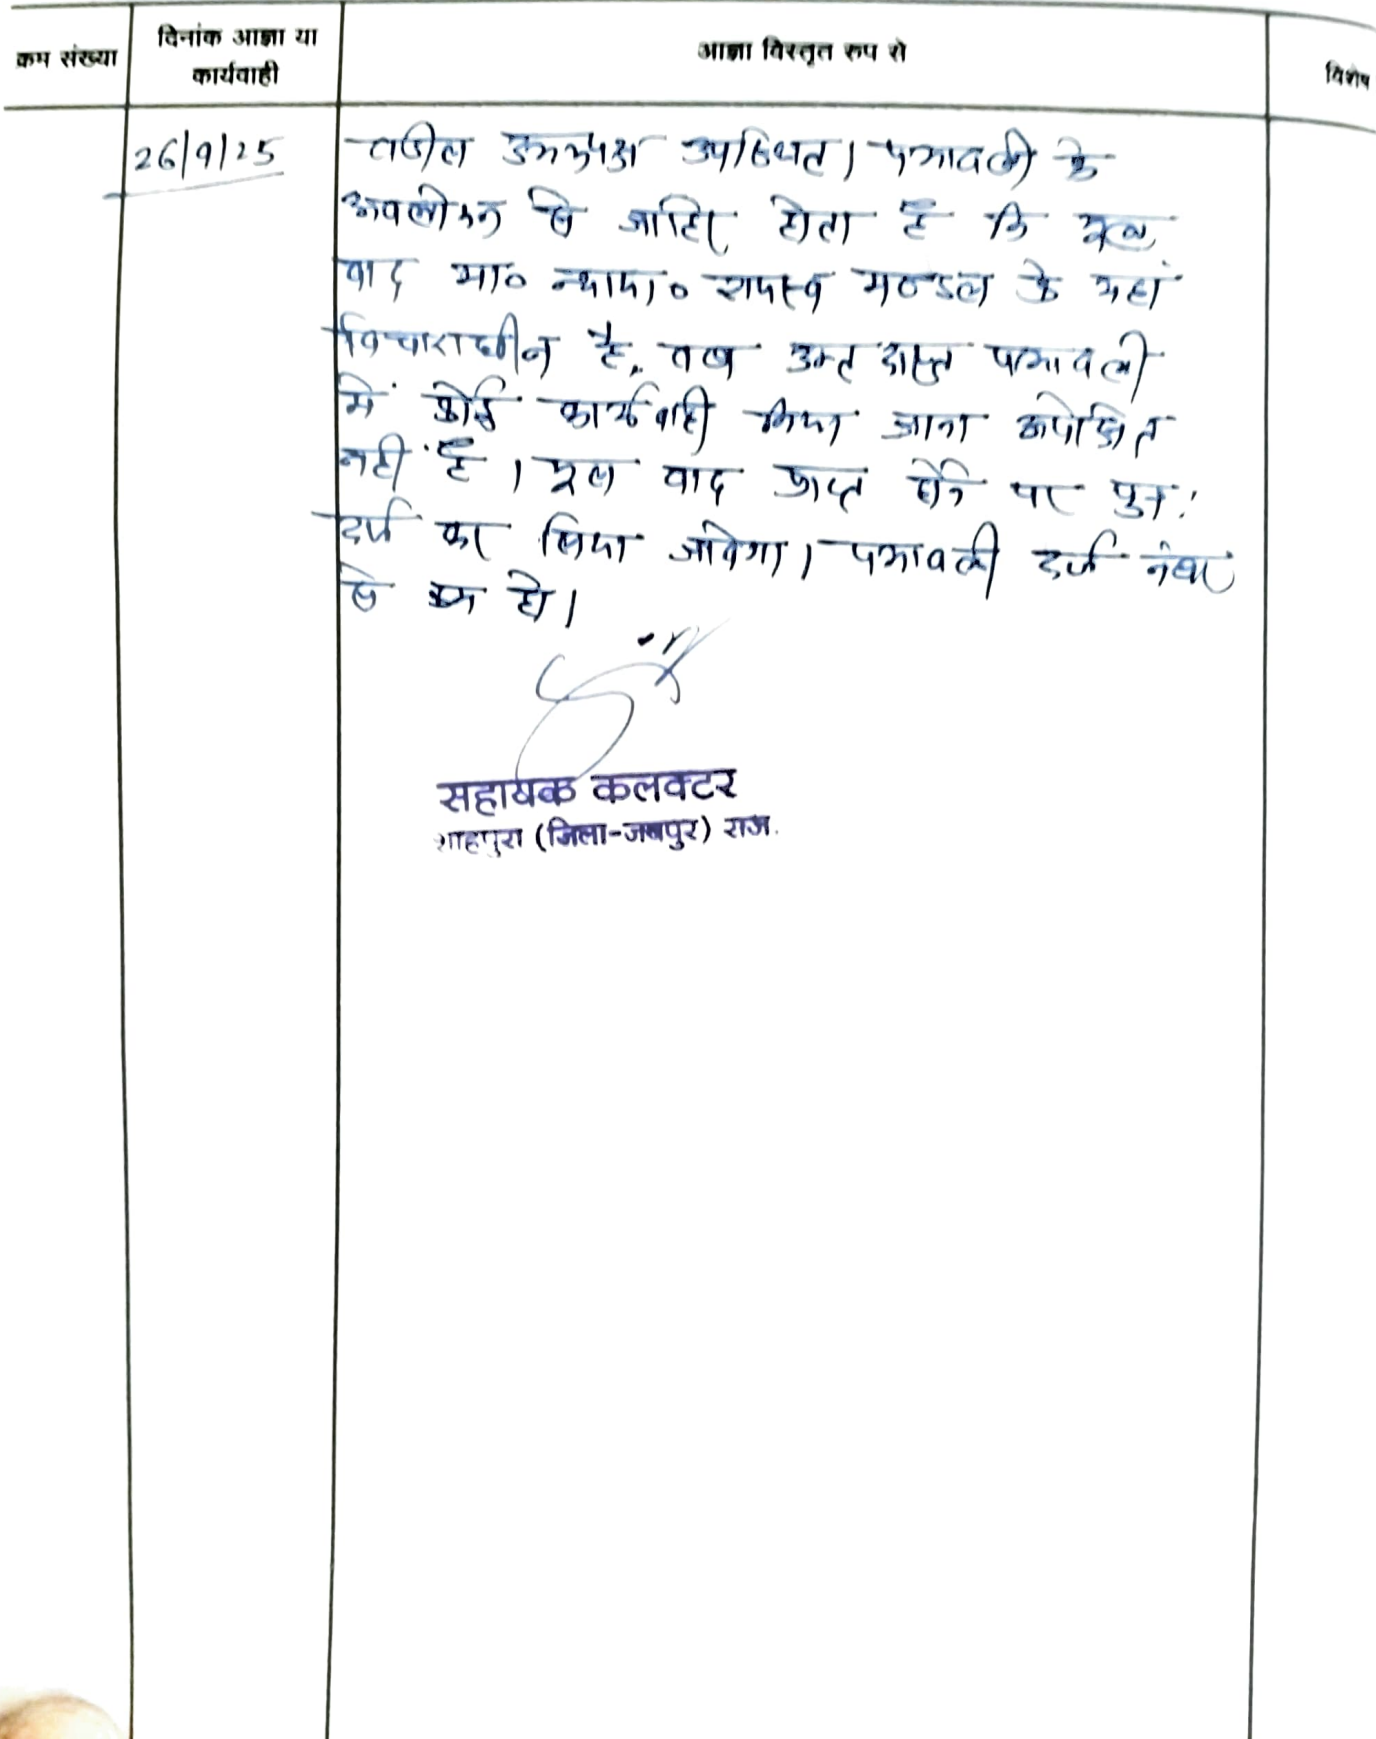 क्रम संख्या
दिनांक आज्ञा या
कार्यवाही
आज्ञा विस्तृत रूप से
विशेष
26/9/25
वकील उभयपक्ष उपस्थित। पत्रावली के
अवलोकन से जाहिर होता है कि मूल
वाद मा० न्याया० राजस्व मण्डल के यहां
विचाराधीन है, तब पत्रावली
में कोई कार्यवाही किया जाना अपेक्षित
नहीं है। मूल वाद प्राप्त होने पर पुन:
दर्ज कर लिया जावेगा। पत्रावली दर्ज नंबर
से कम हो।
सहायक कलक्टर
शाहपुरा (जिला-जयपुर) राज.